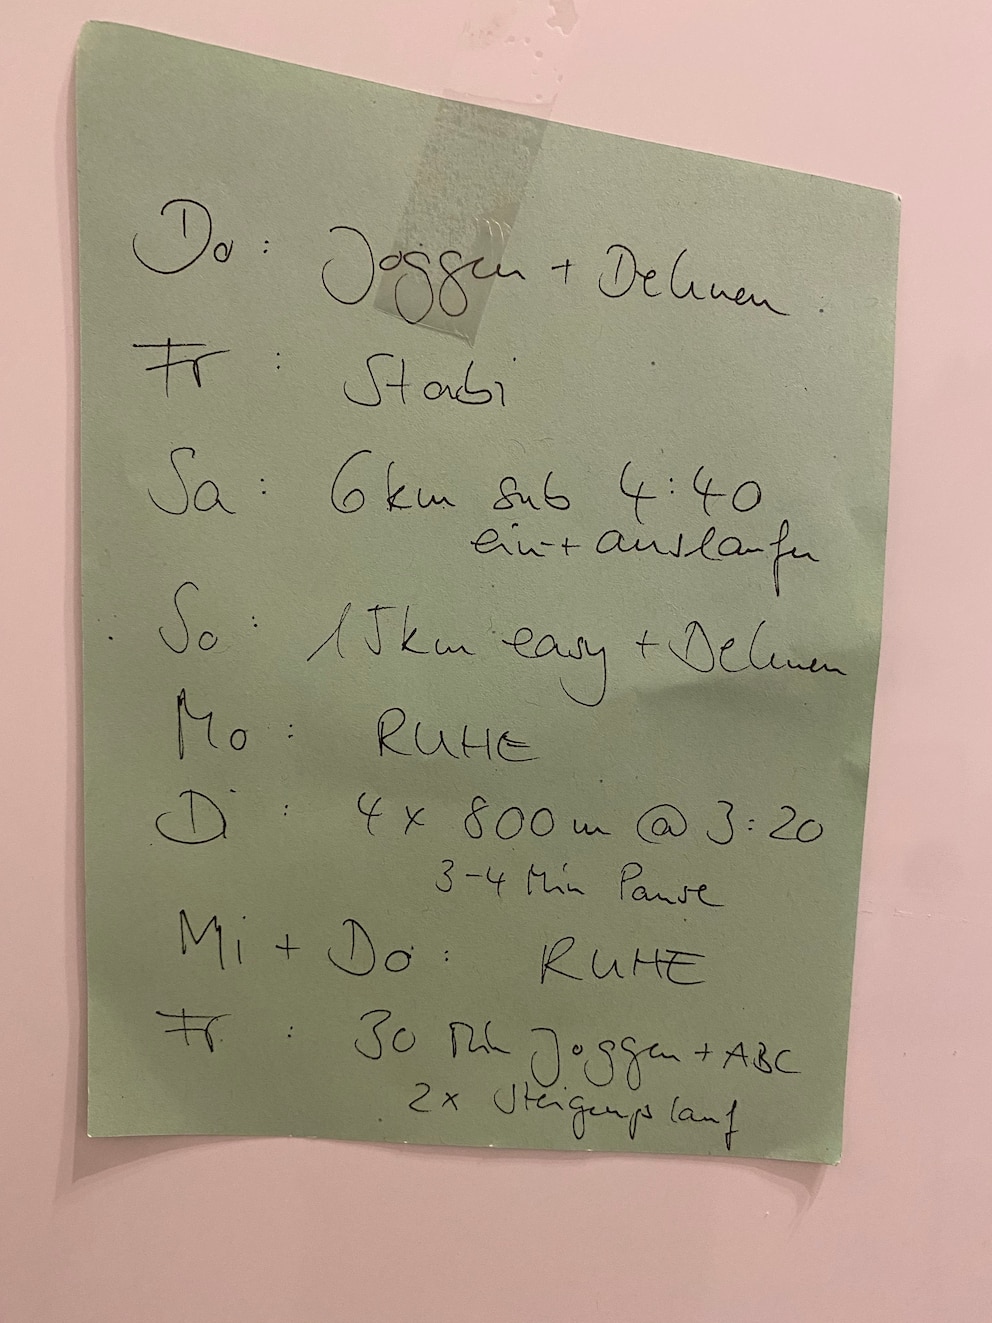 Do: Joggen + Dehnen
Fr: Stabi
Sa: 6 km sub 4:40
ein- + auslaufen
So: 15km easy + Dehnen
Mo: RUHE
Di: 4x 800m @ 3:20
3-4 Min Pause
Mi + Do: RUHE
Fr: 30 Min Joggen + ABC
2x Steigungslauf